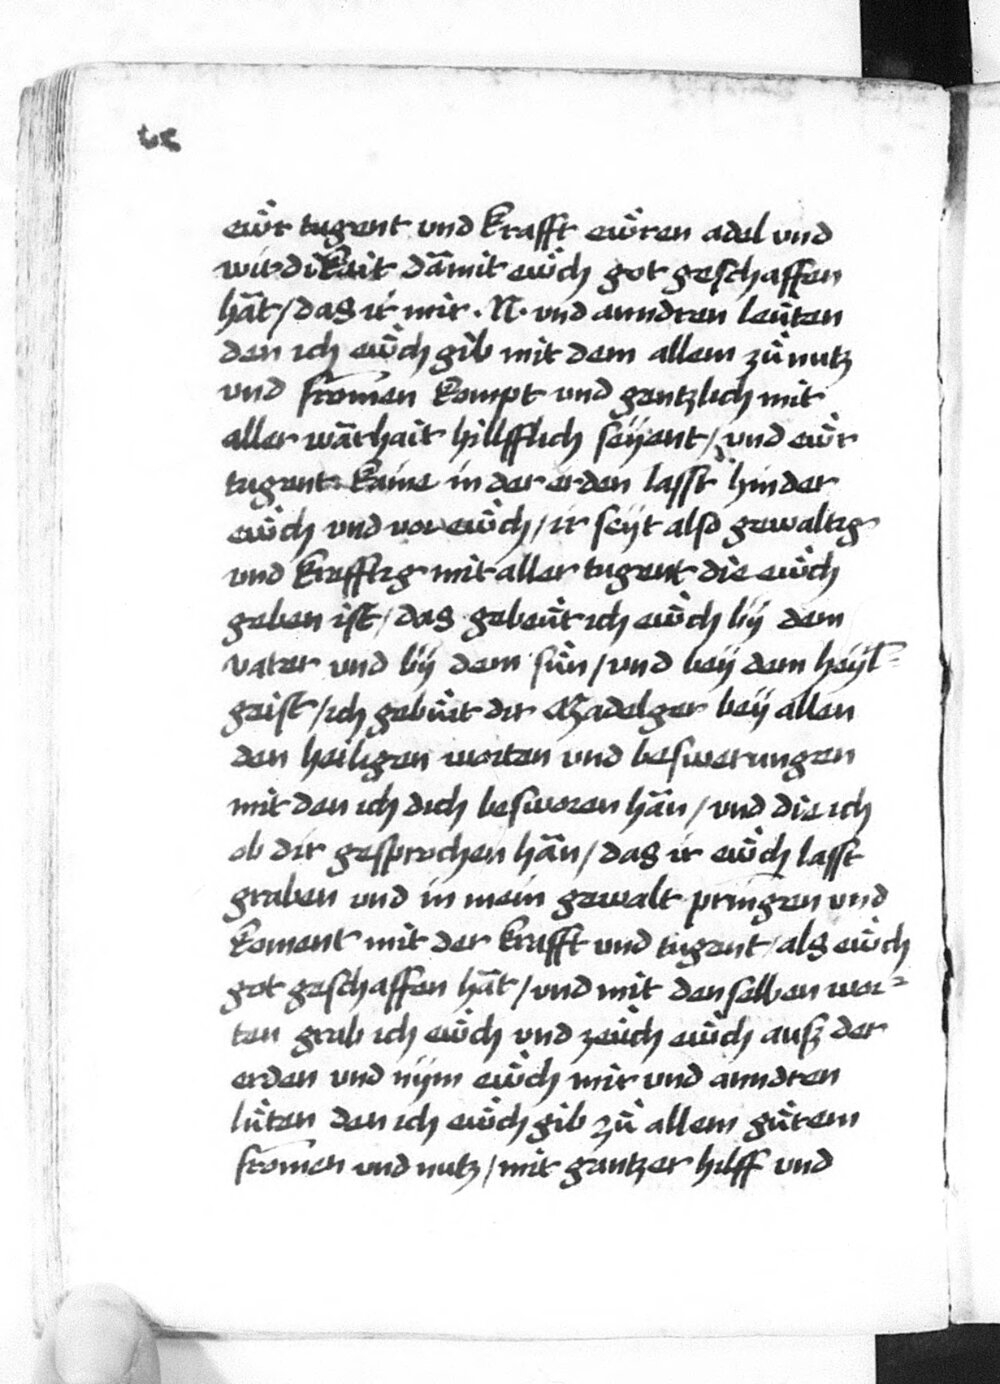 ewͦr tugent vnd krafft ewͦren adel vnd
wirdikait da᷄mit ewͦch got geschaffen
ha᷄t / das ir mir · N · vnd anndren leuͦten
den ich ewͦch gib mit dem allem zuͦ nutz
vnd from̄en kompt vnd gantzlich mit
aller wa᷄rhait hillfflich seÿent / vnd ewͦr
tugent kaine in der erden lasst hinder
ewͦch vnd vor ewͦch / ir seÿt also gewaltig
vnd krefftig mit aller tugent die ewͦch
geben ist / das gebeuͦt ich ewͦch bÿ dem
vater vnd bÿ dem suͦn / vnd beÿ dem heÿl=
geist / ich gebuͦit dir Madelger beÿ allen
den heiligen worten vnd beswerungen
mit den ich dich besworen ha᷄n / vnd die ich
ob dir gesprochen ha᷄n / das ir ewͦch lasst
graben vnd in mein gewalt pringen vnd
koment mit der krafft vnd tugent / als ewͦch
got geschaffen ha᷄t / vnd mit den selben wor=
ten grab ich ewͦch vnd zeuͦch ewͦch ausz der
erden vnd nÿm ewͦch mir vnd anndren
luͦten den ich ewͦch gib zuͦ allem guͦtem
from̄en vnd nutz / mit gantzer hilff vnd